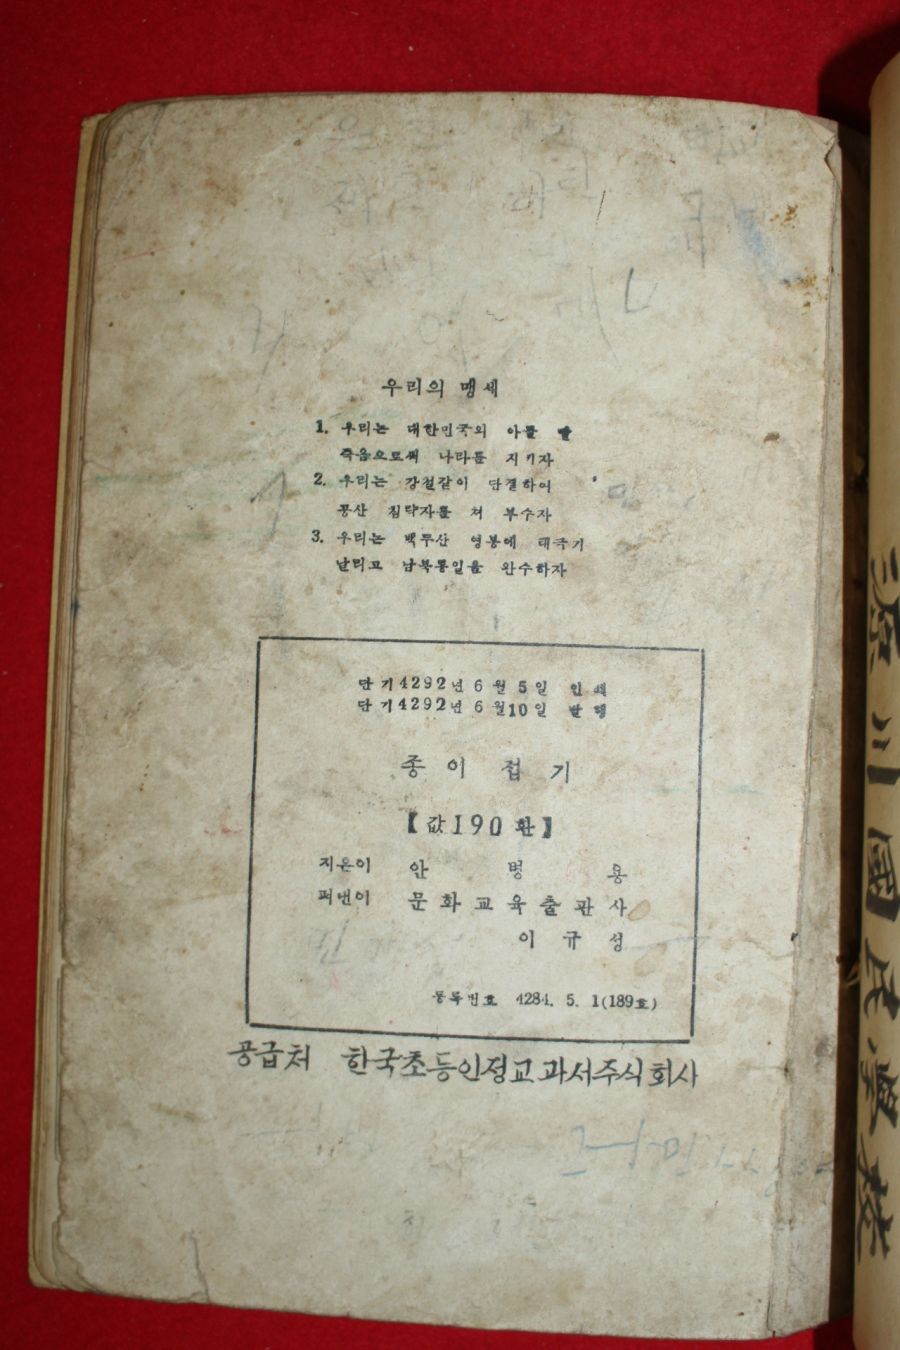 우리의 맹세
1. 우리는 대한민국의 아들 딸
죽음으로써 나라를 지키자
2. 우리는 강철같이 단결하여
공산 침략자를 쳐 부수자
3. 우리는 백두산 영봉에 태극기
날리고 남북통일을 완수하자
단기 4292년 6월 5일 인쇄
단기 4292년 6월 10일 발행
종이 접기
【값 190 환】
지은이 안 병 용
펴낸이 문화교육출판사
이 규 성
등록번호 4284. 5. 1 (189호)
공급처 한국초등인정교과서주식회사
川國民學校